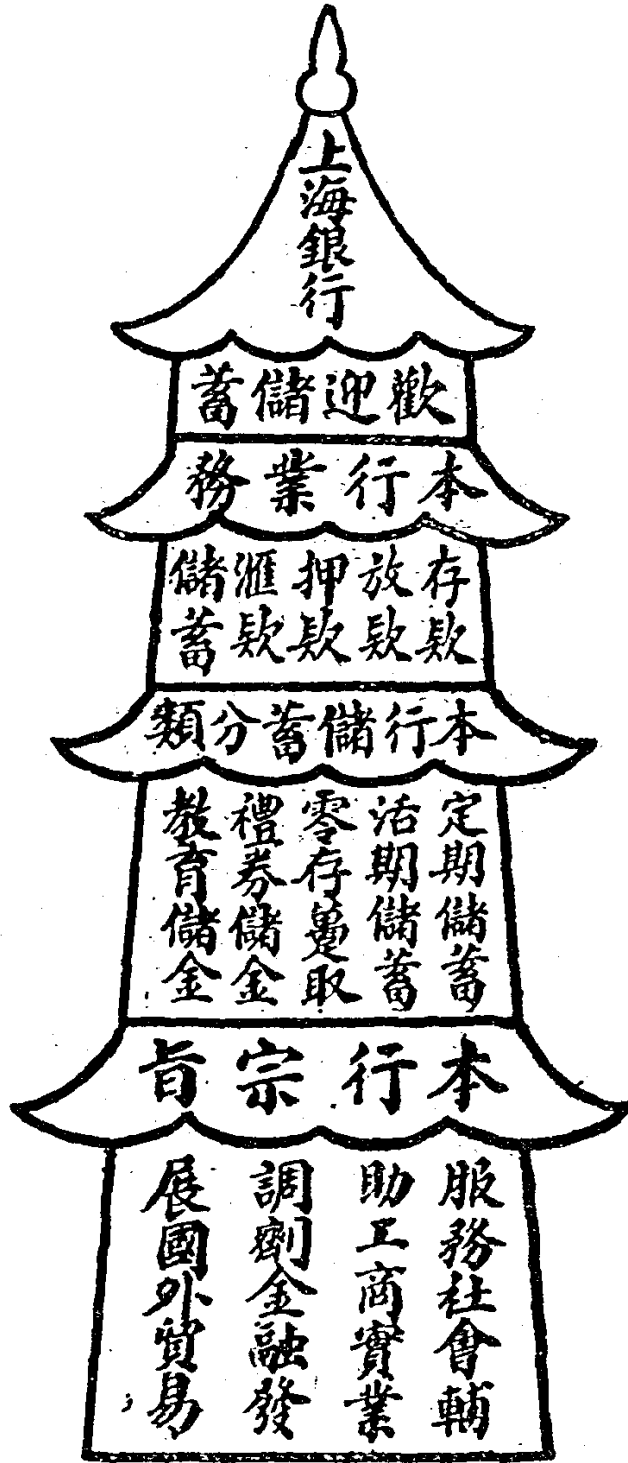 上海銀行
歡迎儲蓄
本行業務
存欵
放欵
押欵
滙欵
儲蓄
本行儲蓄分類
定期儲蓄
活期儲蓄
零存躉取
禮券儲金
教育儲金
本行宗旨
服務社會輔
助工商實業
調劑金融發
展國外貿易